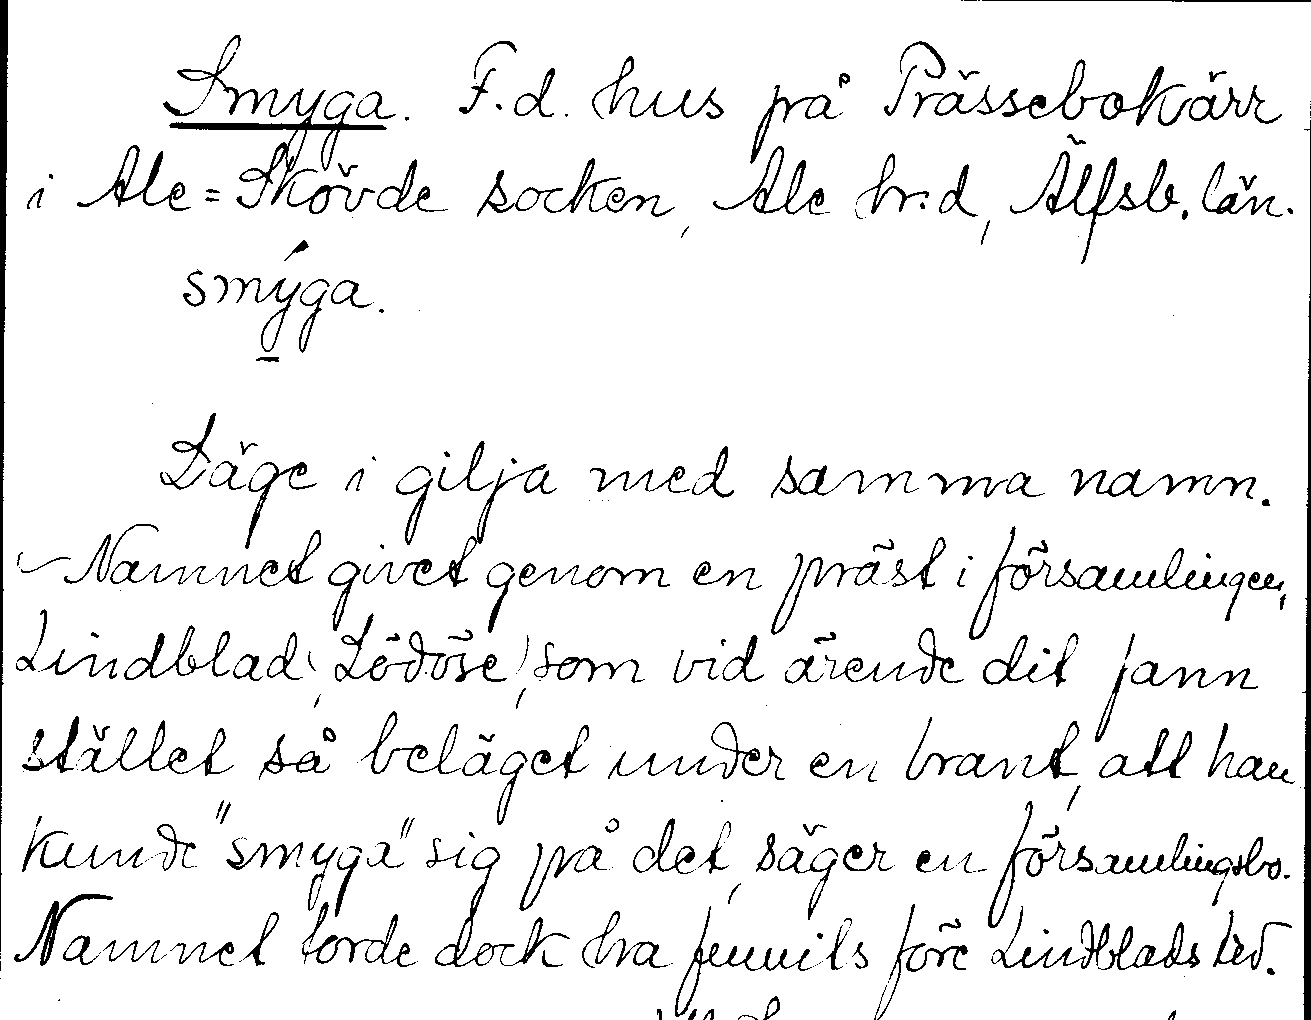 Smyga. F.d. hus på Prässebokärr
i Ale=Skövde socken, Ale hrd, Älfsb. län.
smýga.
Läge i gilja med samma namn.
– Namnet givet genom en präst i församlingen,
Lindblad (Lödöse), som vid ärende dit fann
stället så beläget under en brant, att han
kunde "smyga" sig på det, säger en församlingsbo.
Namnet torde dock ha funnits före Lindblads tid.